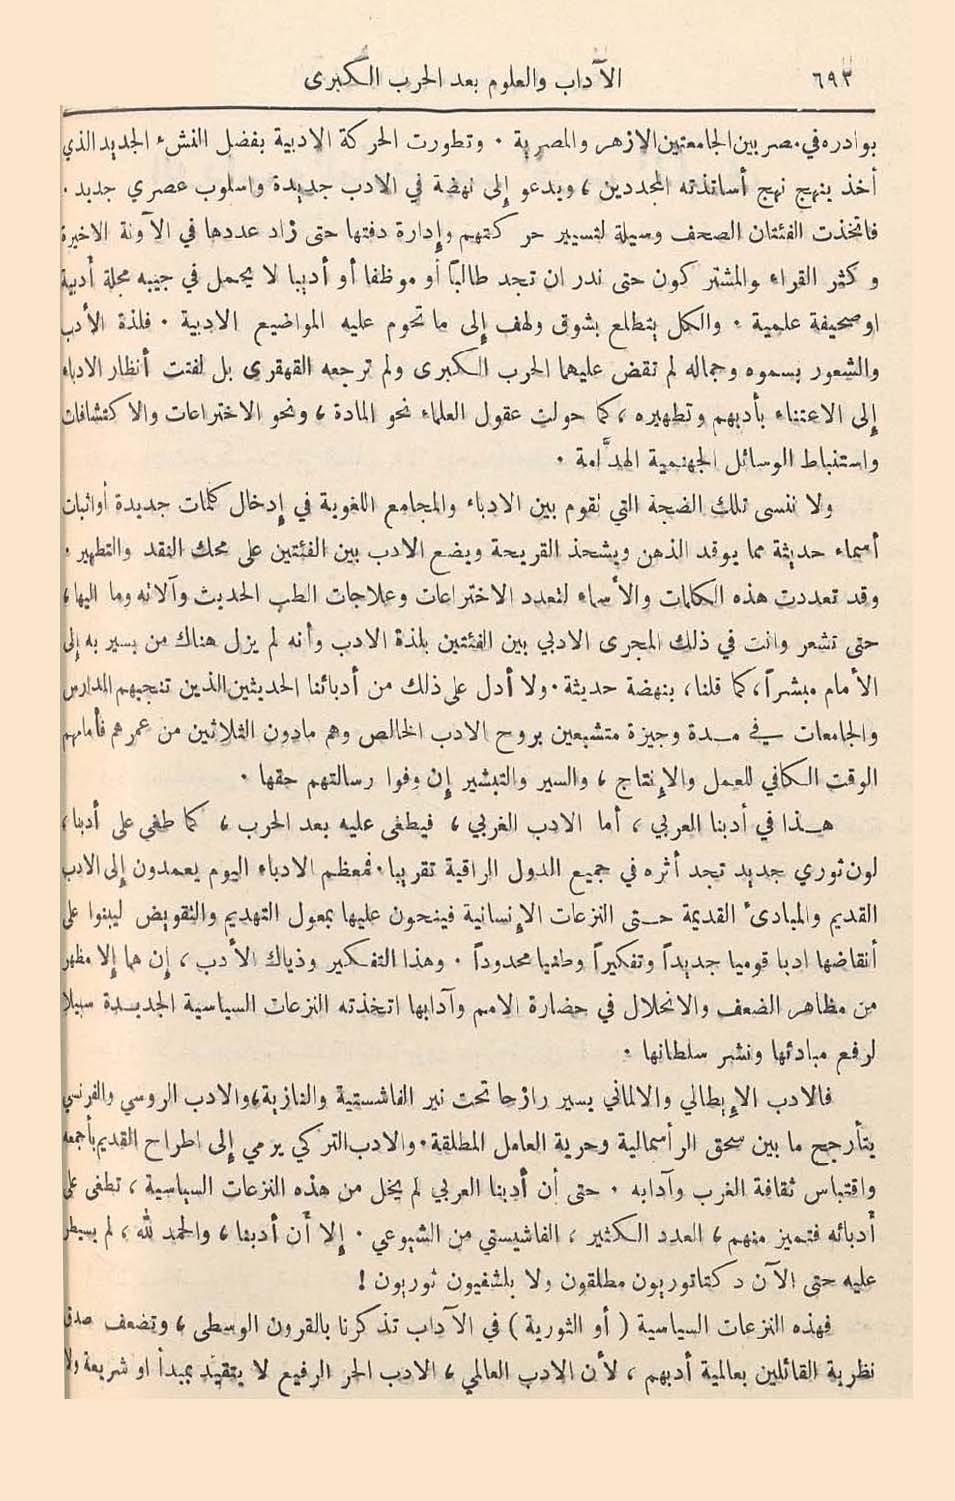 ٦٩٣ الآداب والعلوم بعد الحرب الكبرى
بوادره في مصر بين الجامعتين الازهر والمصرية . وتطورت الحركة الادبية بفضل النشء الجديد الذي
أخذ ينهج نهج أساتذته المجددين ، ويدعو إلى نهضة في الادب جديدة واسلوب عصري جديد .
فاتخذت الفئتان الصحف وسيلة لتسيير حركتهم وإدارة دفتها حتى زاد عددها في الآونة الاخيرة
وكثر القراء والمشتركون حتى ندر ان تجد طالباً أو موظفا أو أديبا لا يحمل في جيبه مجلة أدبية
او صحيفة علمية . والكل يتطلع بشوق ولهف إلى ما تحوم عليه المواضيع الادبية . فلذة الأدب
والشعور بسموه وجماله لم تقض عليهما الحرب الكبرى ولم ترجعه القهقرى بل لفتت أنظار الادباء
إلى الاعتناء بأدبهم وتطهيره ، كما حولت عقول العلماء نحو المادة ، ونحو الاختراعات والاكتشافات
واستنباط الوسائل الجهنمية الهدَّامة .
ولا ننسى تلك الضجة التي تقوم بين الادباء والمجامع اللغوية في إدخال كلمات جديدة أو اثبات
أسماء حديثة مما يوقد الذهن ويشحذ القريحة ويضع الادب بين الفئتين على محك النقد والتطهير .
وقد تعددت هذه الكلمات والأسماء لتعدد الاختراعات وعلاجات الطب الحديث وآلاته وما اليها ،
حتى تشعر وانت في ذلك المجرى الادبي بين الفئتين بلذة الادب وأنه لم يزل هناك من يسير به إلى
الأمام مبشراً ، كما قلنا ، بنهضة حديثة . ولا أدل على ذلك من أدبائنا الحديثين الذين تنجبهم المدارس
والجامعات في مدة وجيزة متشبعين بروح الادب الخالص وهم مادون الثلاثين من عمرهم فأمامهم
الوقت الكافي للعمل والإنتاج ، والسير والتبشير إن وفوا رسالتهم حقها .
هذا في أدبنا العربي ، أما الادب الغربي ، فيطغى عليه بعد الحرب ، كما طغى على أدبنا ،
لون ثوري جديد تجد أثره في جميع الدول الراقية تقريبا . فمعظم الادباء اليوم يعمدون إلى الادب
القديم والمبادىء القديمة حتى النزعات الإنسانية فينحون عليها بمعول التهديم والتقويض ليبنوا على
أنقاضها ادبا قوميا جديداً وتفكيراً وطنيا محدوداً . وهذا التفكير وذياك الأدب ، إن هما إلا مظهر
من مظاهر الضعف والانحلال في حضارة الامم وآدابها اتخذته النزعات السياسية الجديدة سبيلا
لرفع مبادئها ونشر سلطانها .
فالادب الإيطالي والالماني يسير رازحا تحت نير الفاشستية والنازية ، والادب الروسي والفرنسي
يتأرجح ما بين سحق الرأسمالية وحرية العامل المطلقة . والادب التركي يرمي إلى اطراح القديم بأجمعه
واقتباس ثقافة الغرب وآدابه . حتى أن أدبنا العربي لم يخل من هذه النزعات السياسية ، تطغى على
أدبائه فتميز منهم ، العدد الكثير ، الفاشيستي من الشيوعي . إلا أن أدبنا ، والحمد لله ، لم يسيطر
عليه حتى الآن دكتاتوريون مطلقون ولا بلشفيون ثوريون !
فهذه النزعات السياسية ( أو الثورية ) في الآداب تذكرنا بالقرون الوسطى ، وتضعف صدق
نظرية القائلين بعالمية أدبهم ، لأن الادب العالمي ، الادب الحر الرفيع لا يتقيَّد بمبدأ او شريعة ولا